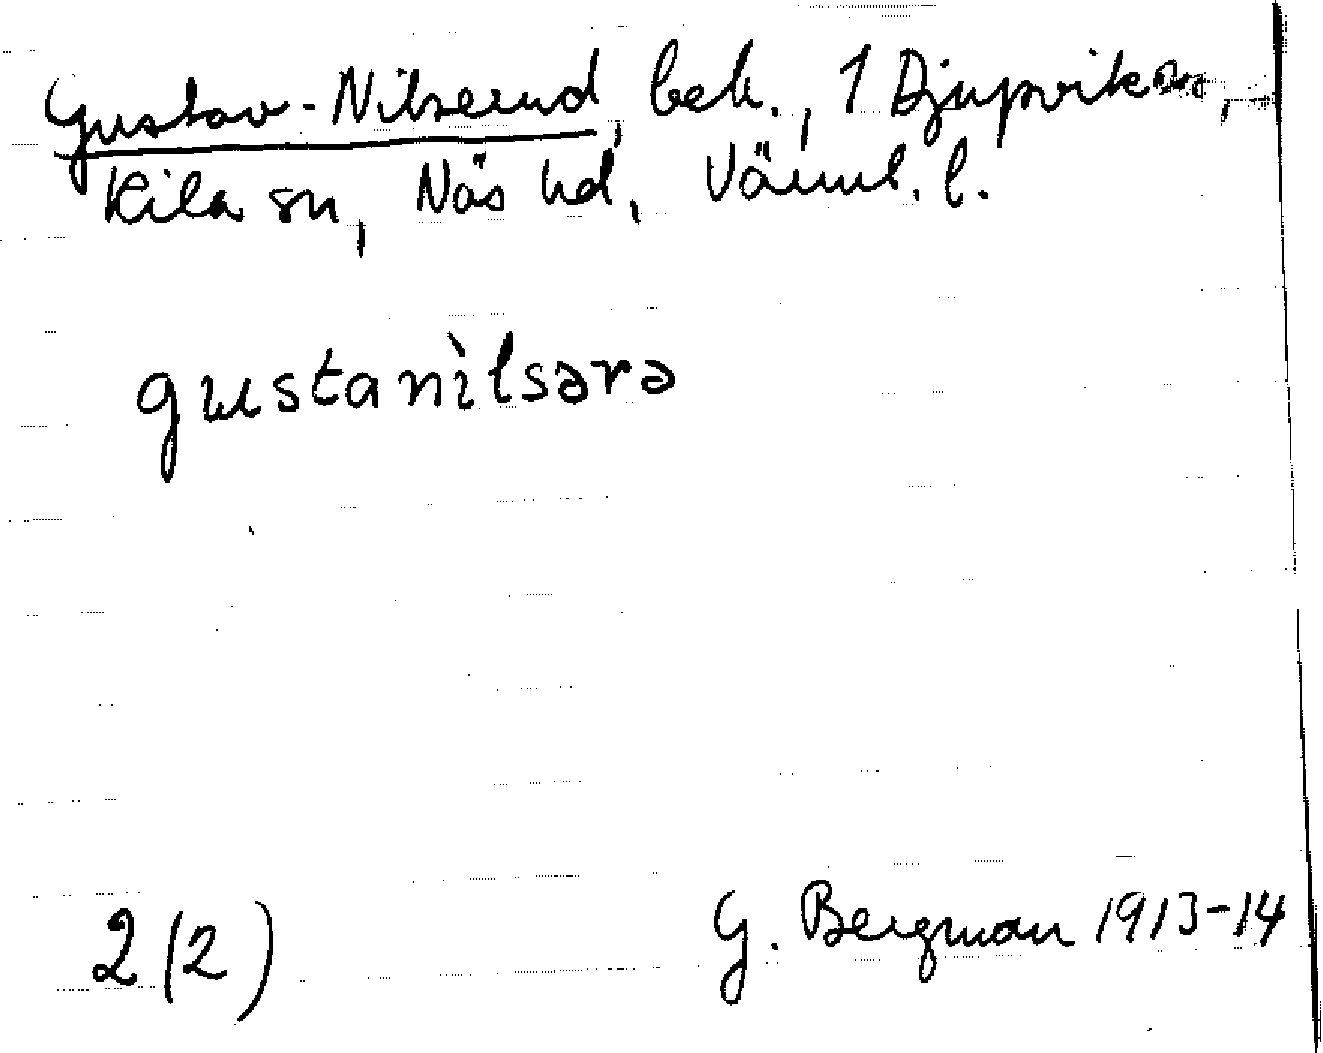 Gustav-Nilserud, beb., 1 Djupviken,
Kila sn, Näs hd, Värml. l.
gustanìlsərə
2 (2)
G. Bergman 1913-14